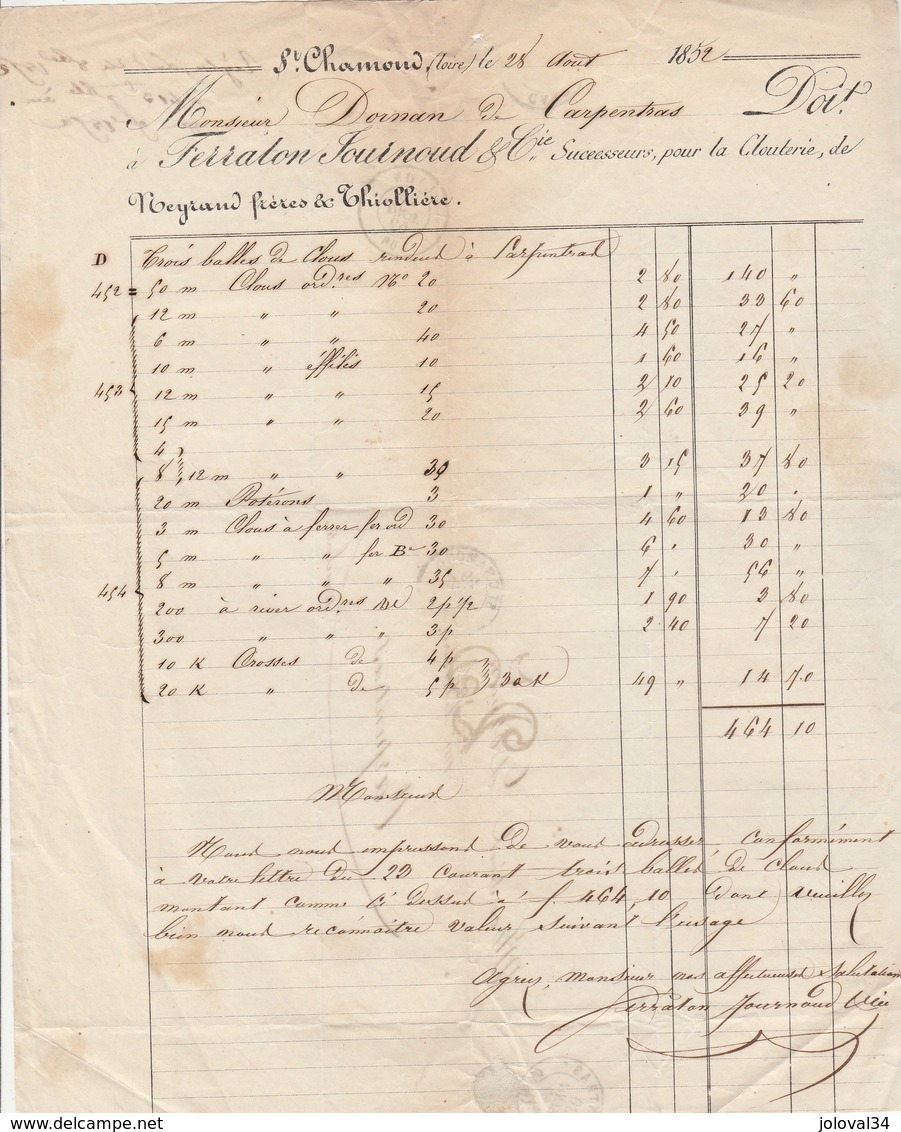 St. Chamond, (Loire) le 28 Août 1852
Monsieur Dornan de Carpentras Doit
à Ferraton Journoud & Cie. Successeurs, pour la Clouterie, de
Neyrand frères & Thiollière.
D Trois balles de Clous rendues à Carpentras
452 = 50 m Clous ordres No 20 2 80 140 "
12 m " " 20 2 80 33 60
6 m " " 40 4 50 27 "
10 m " éffilés 10 1 60 16 "
453 12 m " " 15 2 10 25 20
15 m " " 20 2 60 39 "
4
8 } 12 m " " 30 3 15 37 80
20 m Potérons 3 1 " 20 "
3 m Clous à ferrer fer ord 30 4 60 13 80
5 m " " fer Be 30 6 " 30 "
8 m " " " 35 7 " 56 "
454
200 à river ordres de 2 p 1/2 1 90 3 80
300 " " " 3 p 2 40 7 20
10 K Crosses de 4 p
20 K " de 5 p } 30 K 49 " 14 70
464 10
Monsieur
Nous nous empressons de vous adresser, conformément
à votre lettre du 23 courant trois balles de clous
montant comme ci dessus à f. 464,10 dont veuillez
bien nous reconnaître valeur suivant l'usage
Agréez, monsieur nos affectueuses salutations
Ferraton Journoud & Cie
delcampe.net
joloval34